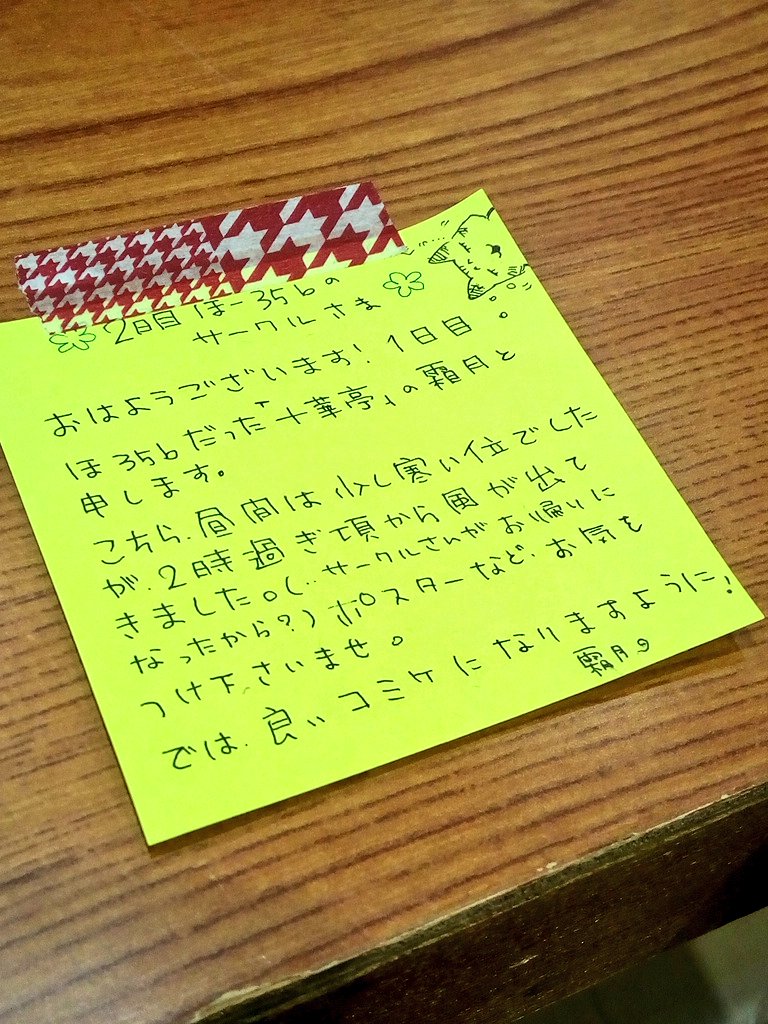 2日目 ほ-35bの
サークルさま
おはようございます! 1日目。
ほ35bだった「十華亭」の霜月と
申します。
こちら、昼間は少し寒い位でした
が、2時過ぎ頃から風が出て
きました。(…サークルさんがお帰りに
なったから?) ポスターなど、お気を
つけ下さいませ。
では、良いコミケになりますように!
霜月。